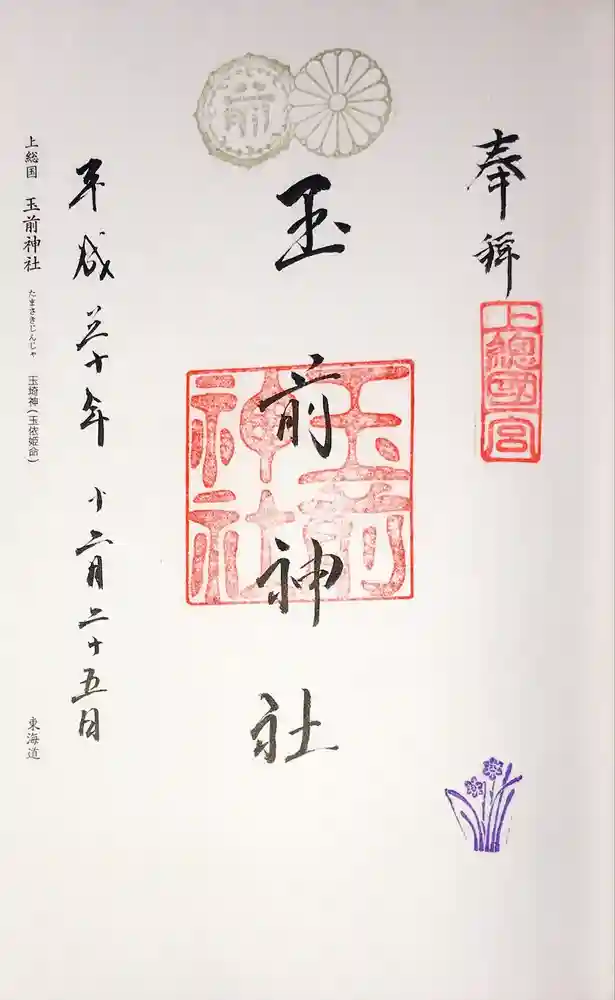 奉拝
上總國一宮
玉前神社
玉前神社
前
平成三十年 十二月二十五日
上総国 玉前神社 たまさきじんじゃ 玉埼神(玉依姫命) 東海道